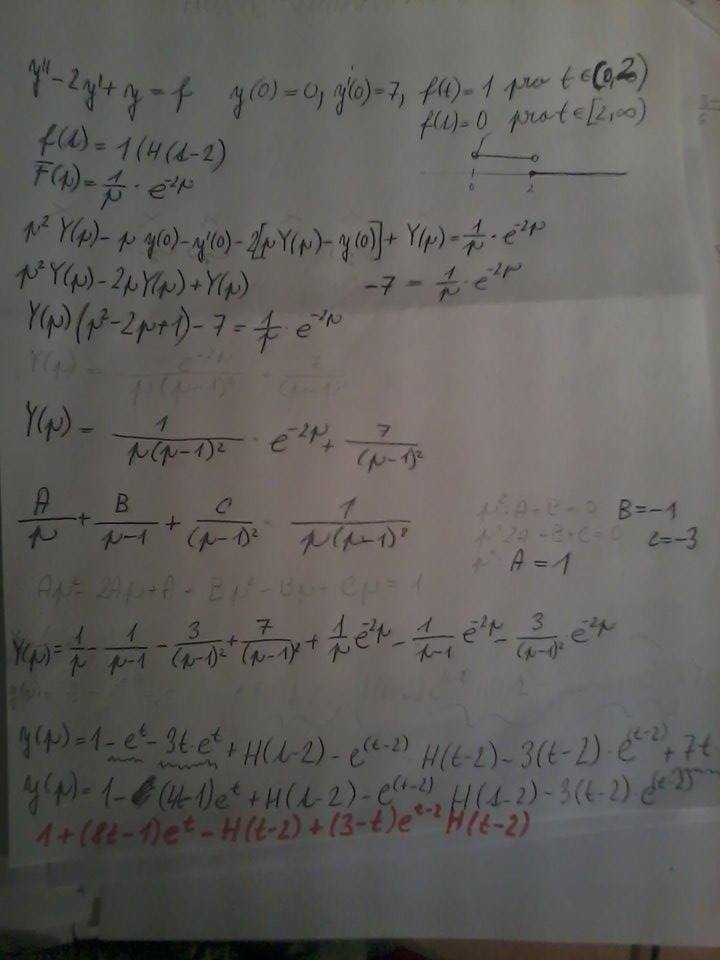 y'' - 2y' + y = f   y(0) = 0, y'(0) = 7, f(t) = 1 pro t ∈ (0, 2)
f(t) = 0 pro t ∈ [2, ∞)
f(t) = 1(H(t-2)
0 2
F(p) = 1/p · e^(-2p)
p² Y(p) - p y(0) - y'(0) - 2[pY(p) - y(0)] + Y(p) = 1/p · e^(-2p)
p² Y(p) - 2pY(p) + Y(p)   -7 = 1/p · e^(-2p)
Y(p)(p² - 2p + 1) - 7 = 1/p · e^(-2p)
Y(p) = e^(-2p)/(p(p-1)²) · 7/(p-1)²
Y(p) = 1/(p(p-1)²) · e^(-2p) + 7/(p-1)²
A/p + B/(p-1) + C/(p-1)²   1/(p(p-1)²)   B = -1
C = -3
A = 1
Ap² - 2Ap + A + Bp² - Bp + Cp = 1
Y(p) = 1/p - 1/(p-1) - 3/(p-1)² + 7/(p-1)² + 1/p e^(-2p) - 1/(p-1) e^(-2p) - 3/(p-1)² e^(-2p)
y(p) = 1 - e^t - 3t·e^t + H(t-2) - e^(t-2) H(t-2) - 3(t-2)·e^(t-2) + 7t
y(p) = 1 - (4t-1)e^t + H(t-2) - e^(t-2) H(t-2) - 3(t-2)·e^(t-2)
1 + (8t-1)e^t - H(t-2) + (3-t)e^(t-2) H(t-2)